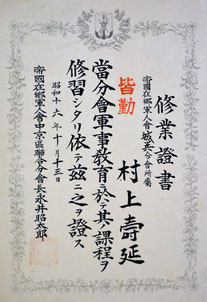 修業證書
帝國在郷軍人會城巽分會所屬
皆勤
村上壽延
當分會軍事教育ニ於テ其ノ課程ヲ
修習シタリ依テ茲ニ之ヲ證ス
昭和十六年十月十三日
帝國在郷軍人會中京區聯合分會長永井昭太郎